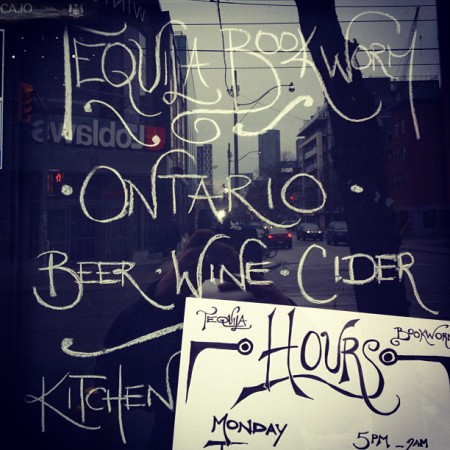 CAJO
TEQUILA BOOKWORM
Loblaws
• ONTARIO •
BEER • WINE • CIDER
KITCHEN
TEQUILA BOOKWORM
HOURS
MONDAY 5PM - 2AM